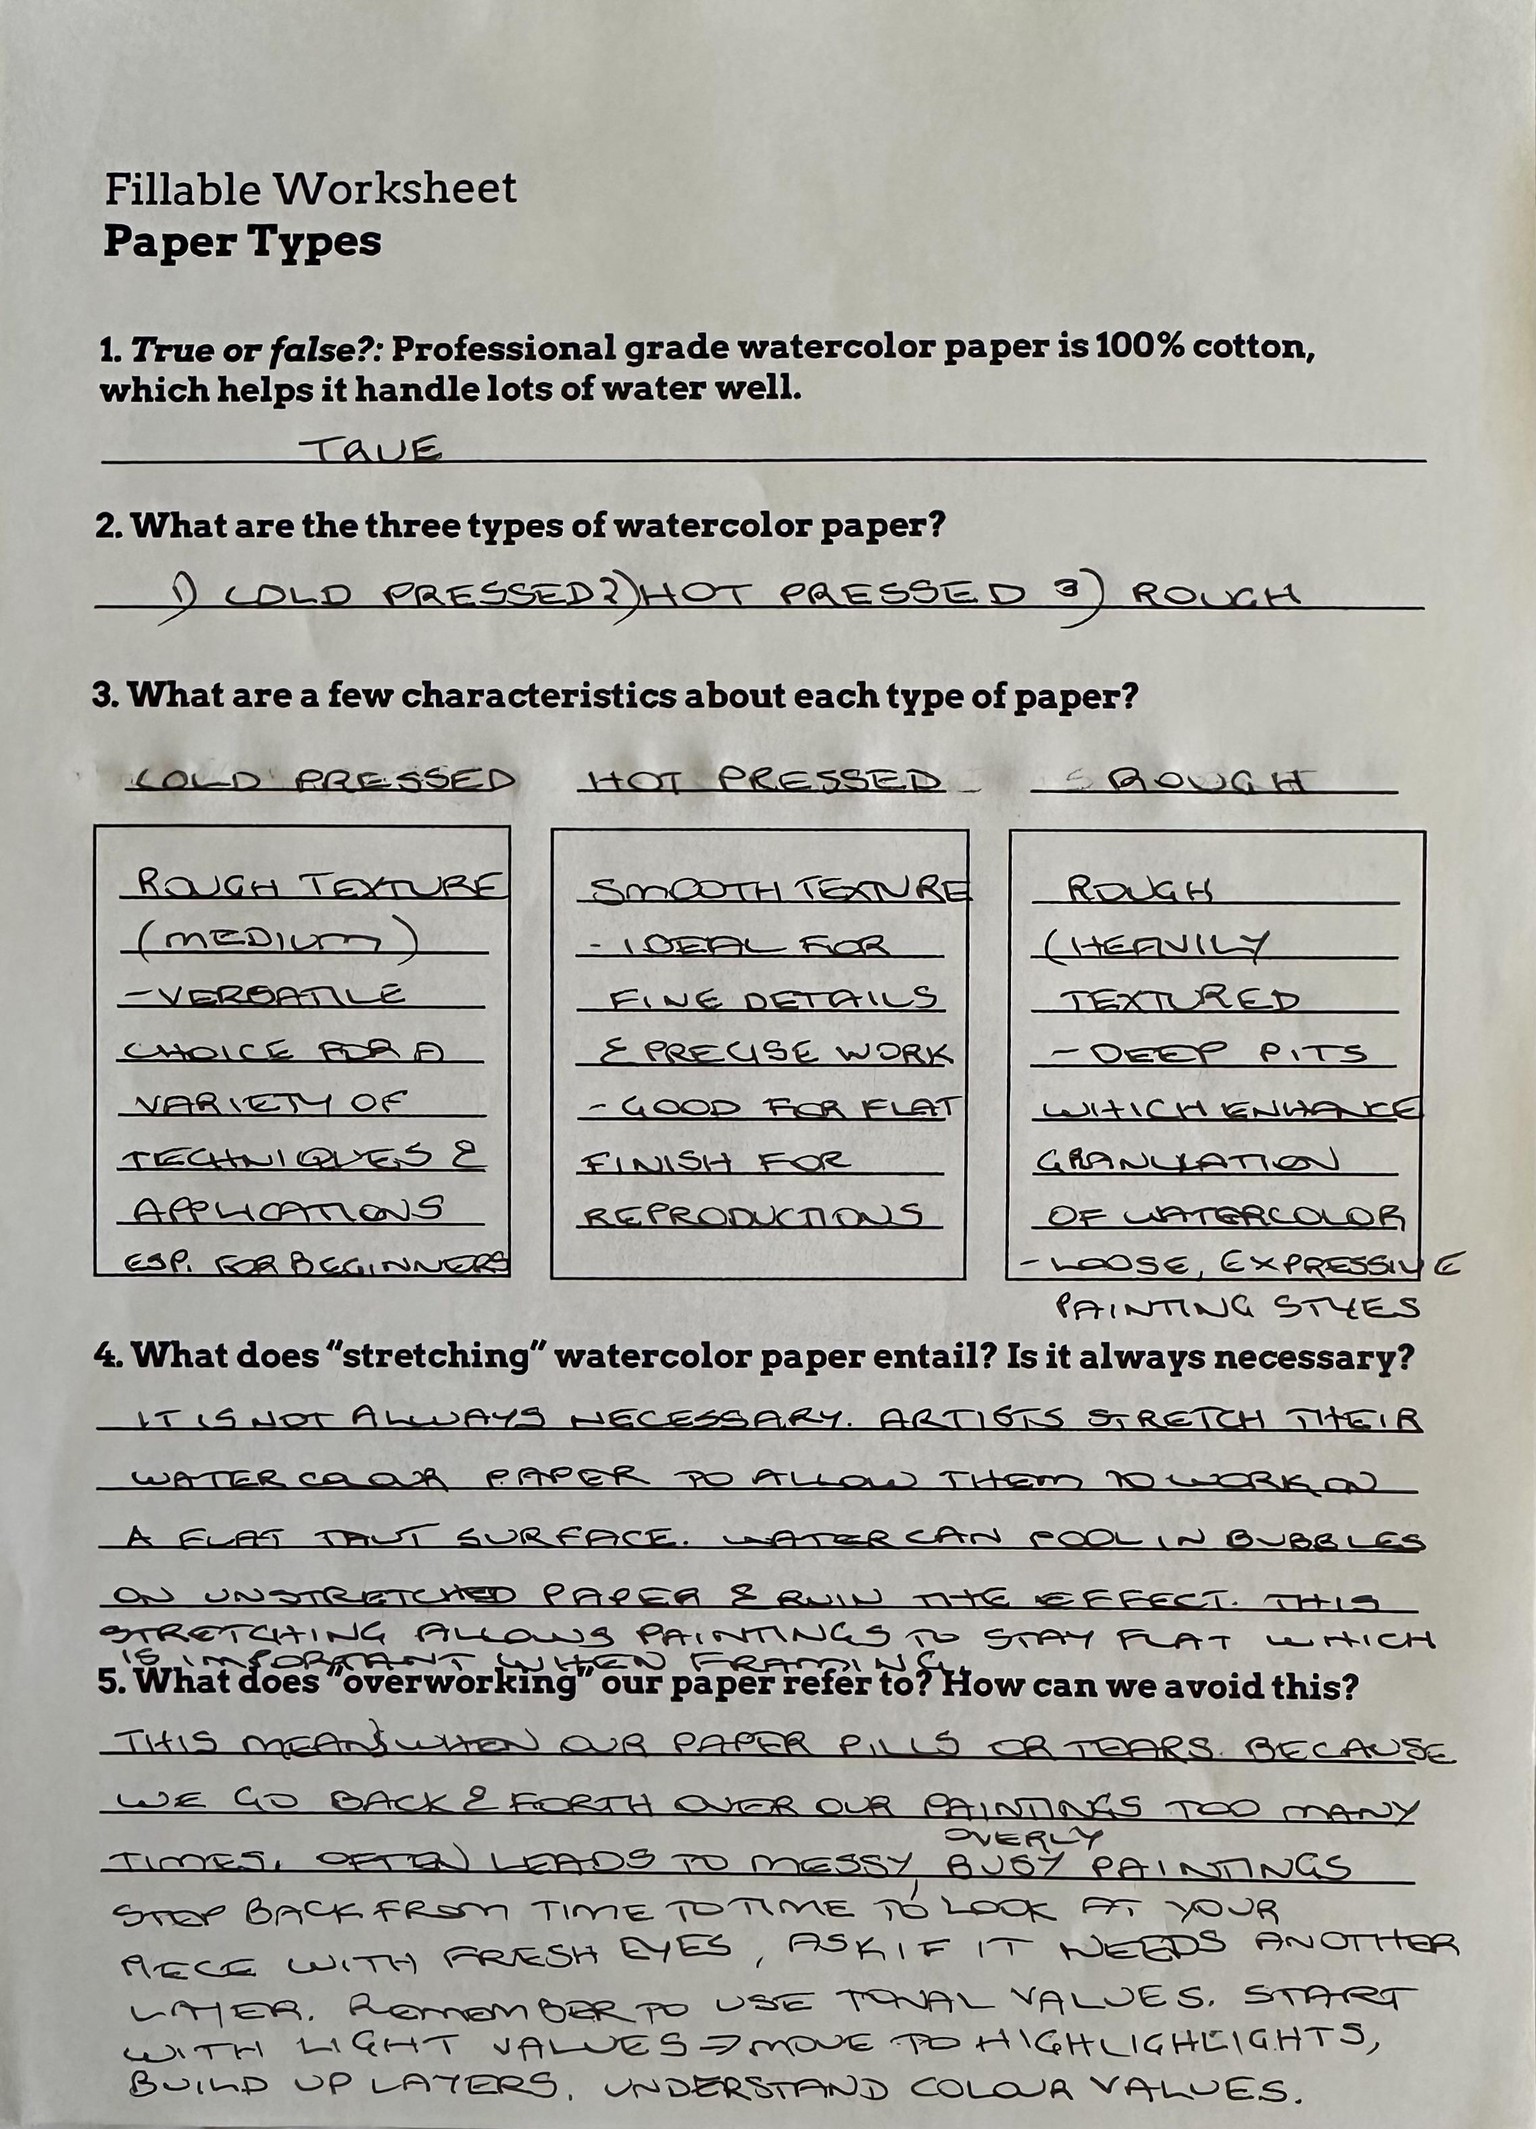 Fillable Worksheet
Paper Types
1. True or false?: Professional grade watercolor paper is 100% cotton,
which helps it handle lots of water well.
TRUE
2. What are the three types of watercolor paper?
1) COLD PRESSED 2) HOT PRESSED 3) ROUGH
3. What are a few characteristics about each type of paper?
COLD PRESSED
ROUGH TEXTURE
(MEDIUM)
- VERSATILE
CHOICE FOR A
VARIETY OF
TECHNIQUES &
APPLICATIONS
ESP. FOR BEGINNERS
HOT PRESSED
SMOOTH TEXTURE
- IDEAL FOR
FINE DETAILS
& PRECISE WORK
- GOOD FOR FLAT
FINISH FOR
REPRODUCTIONS
ROUGH
ROUGH
(HEAVILY
TEXTURED
- DEEP PITS
WHICH ENHANCE
GRANULATION
OF WATERCOLOR
- LOOSE, EXPRESSIVE
PAINTING STYLES
4. What does "stretching" watercolor paper entail? Is it always necessary?
IT IS NOT ALWAYS NECESSARY. ARTISTS STRETCH THEIR
WATER COLOUR PAPER TO ALLOW THEM TO WORK ON
A FLAT TAUT SURFACE. WATER CAN POOL IN BUBBLES
ON UNSTRETCHED PAPER & RUIN THE EFFECT. THIS
STRETCHING ALLOWS PAINTINGS TO STAY FLAT WHICH
IS IMPORTANT WHEN FRAMING.
5. What does "overworking" our paper refer to? How can we avoid this?
THIS MEANS WHEN OUR PAPER PILLS OR TEARS. BECAUSE
WE GO BACK & FORTH OVER OUR PAINTINGS TOO MANY
TIMES. OFTEN LEADS TO MESSY, OVERLY BUSY PAINTINGS
STEP BACK FROM TIME TO TIME TO LOOK AT YOUR
PIECE WITH FRESH EYES, ASK IF IT NEEDS ANOTHER
LAYER. REMEMBER TO USE TONAL VALUES. START
WITH LIGHT VALUES → MOVE TO HIGHLIGHLIGHTS,
BUILD UP LAYERS. UNDERSTAND COLOUR VALUES.